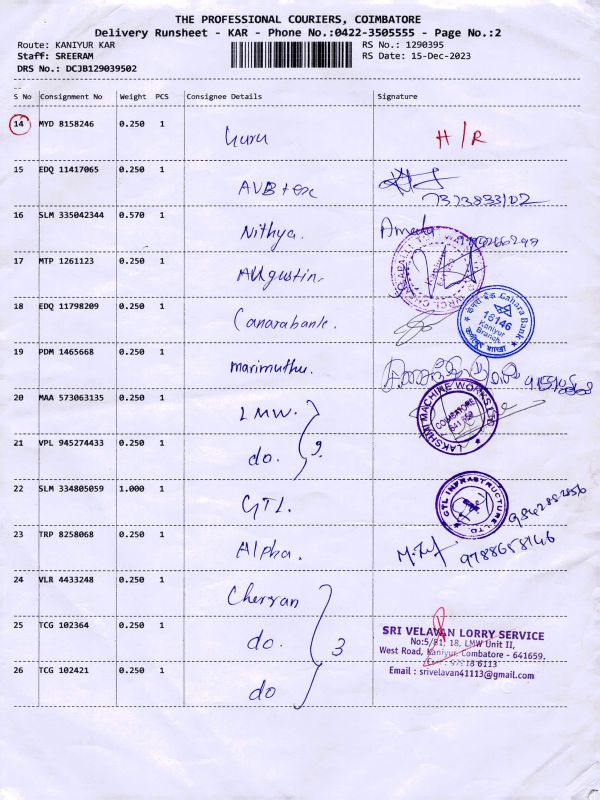 THE PROFESSIONAL COURIERS, COIMBATORE
Delivery Runsheet - KAR - Phone No.:0422-3505555 - Page No.:2
Route: KANIYUR KAR
RS No.: 1290395
Staff: SREERAM
RS Date: 15-Dec-2023
DRS No.: DCJB129039502
S No Consignment No Weight PCS Consignee Details Signature
14 MYD 8158246 0.250 1 Guru H/R
15 EDQ 11417065 0.250 1 AVB tex
16 SLM 335042344 0.570 1 Nithya.
17 MTP 1261123 0.250 1 Augustin
18 EDQ 11798209 0.250 1 Canarabank.
केनरा बैंक Canara Bank
16146
Kaniyur
Branch
19 PDM 1465668 0.250 1 marimuthu.
20 MAA 573063135 0.250 1 LMW.
LAKSHMI MACHINE WORKS LTD
COIMBATORE
21 VPL 945274433 0.250 1 do. 9.
22 SLM 334805059 1.000 1 GTL.
GTL INFRASTRUCTURE LTD.
23 TRP 8258068 0.250 1 Alpha.
9788658146
24 VLR 4433248 0.250 1 Cherran
25 TCG 102364 0.250 1 do. 3
SRI VELAVAN LORRY SERVICE
No:5/81, 18, LMW Unit II,
West Road, Kaniyur, Combatore - 641659.
6113
Email : srivelavan41113@gmail.com
26 TCG 102421 0.250 1 do